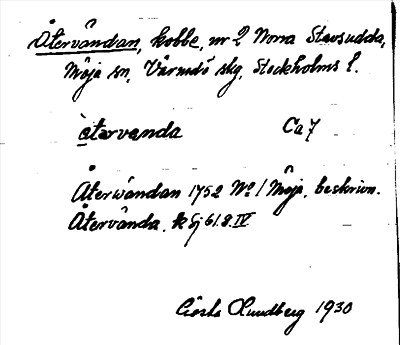 Återvändan, kobbe, nr 2 Norra Stavsudda,
Möja sn, Värmdö skg, Stockholms l.
åtərvanda Ca 7
Återwändan 1752 No 1 Möja, beskrivn.
Återvända, k Sj 61.8.IV
Gösta Lundberg 1930